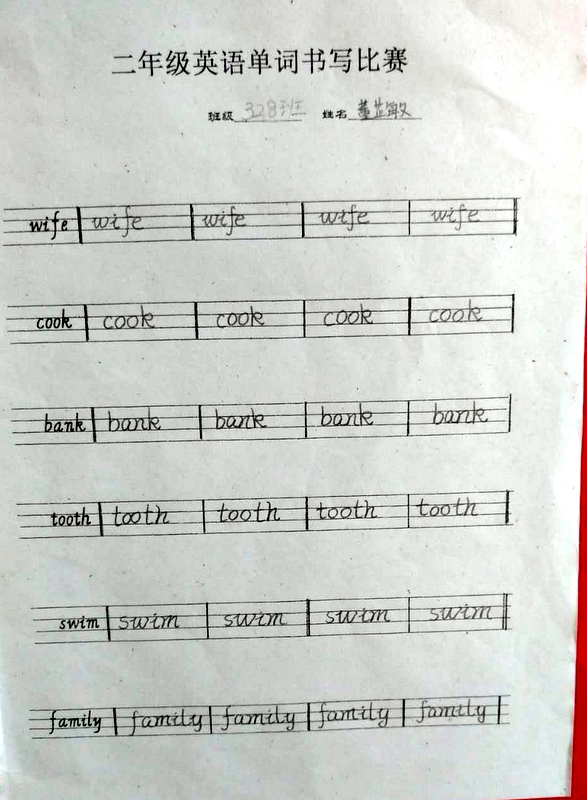 二年级英语单词书写比赛
班级 328班 姓名 董 敏
wife wife wife wife wife
cook cook cook cook cook
bank bank bank bank bank
tooth tooth tooth tooth tooth
swim swim swim swim swim
family family family family family